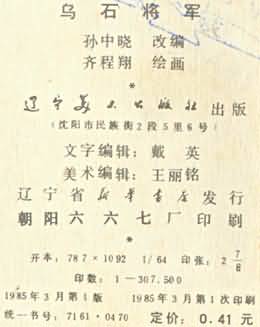 乌石将军
孙中晓 改编
齐程翔 绘画
*
辽宁美术出版社 出版
(沈阳市民族街2段5里6号)
文字编辑：戴英
美术编辑：王丽铭
辽宁省新华书店发行
朝阳六六七厂印刷
*
开本：787×1092 1/64 印张：2 7/8
印数：1—307.500
1985年3月第1版 1985年3月第1次印刷
统一书号：7161·0470 定价：0.41元